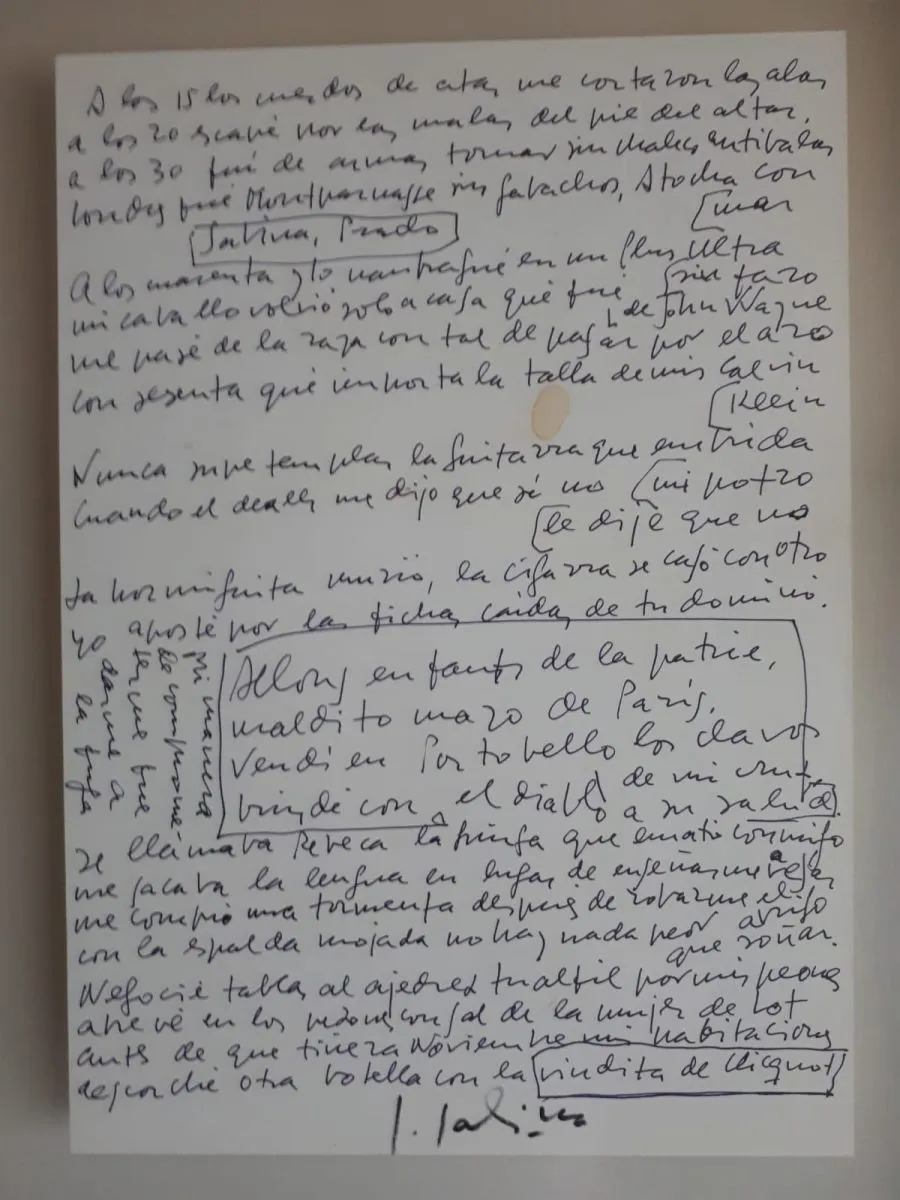 A los 15 los cuerdos de atar me cortaron las alas
a los 20 escapé por las malas del pie del altar.
a los 30 fui de armas tomar sin chaleco antibalas
Londres fué Montparnasse sin gabachos, Atocha con
mar
A los y lo naufragué en un Plus Ultra
sin faro
mi caballo volvió solo a casa qué fué
de John Wayne
me pasé de la raya con tal de pasar por el aro
con sesenta qué importa la talla de mis Calvin
Klein
Nunca supe templar la guitarra que embrida
mi potro
Cuando el me dijo que sí no
le dije que no
La hormiguita murió, la cigarra se casó con otro
yo aposté por las fichas caídas de tu dominó.
Mi manera
de comprome-
terme fue
darme a
la fuga
Allons enfants de la patrie,
maldito mazo de París,
Vendí en Portobello los clavos
de mi cruz
brindé con el diablo a su salud.
Se llamaba Rebeca la gringa que empató conmigo
me sacaba la lengua en lugar de enseñarme a rezar
me compró una tormenta después de robarme el
abrigo
con la espalda mojada no hay nada peor
que soñar.
Negocié tablas al ajedrez tu alfil por mis peones
con sal de la mujer de Lot
antes de que tiñera Noviembre mis habitaciones
descorché otra botella con la viudita de Clicquot
J. Sabina